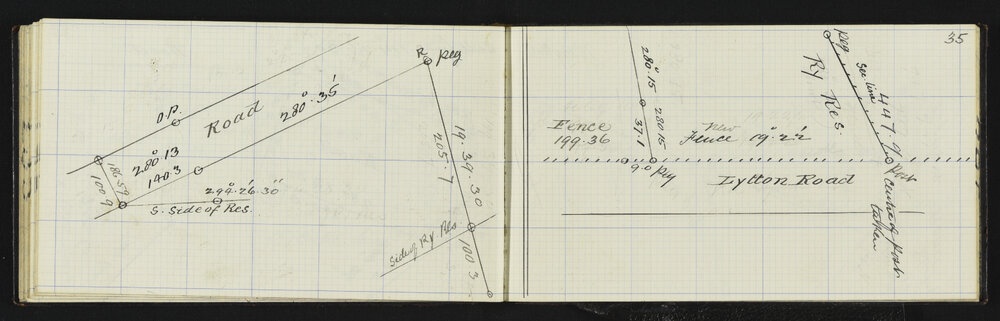 O.P.
Road
280°.35'
R peg
280°.13
140.3
186.59
100.9
294°.26'.30"
S. Side of Res.
19.39.30
205.7
Side of Ry Res
100.3
35
peg
Sec. line
447.9
Ry Res.
280°.15
280.15
37.1
Fence
199.36
New
Fence 19°.22'
9.0 peg
Lytton Road
Post
Centre of Post
taken